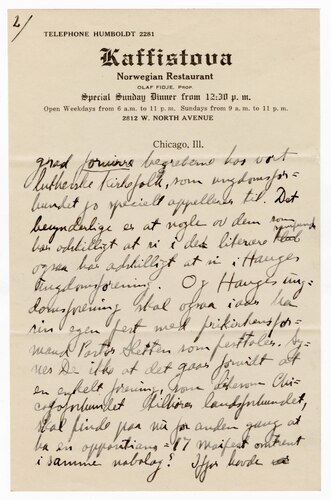 2/
TELEPHONE HUMBOLDT 2281
Kaffistova
Norwegian Restaurant
OLAF FIDJE, PROP.
Special Sunday Dinner from 12:30 p. m.
Open Weekdays from 6 a.m. to 11 p. m. Sundays from 9 a.m. to 11 p. m.
2812 W. NORTH AVENUE
Chicago, Ill.
grad forvirre begreberne hos vort
lutherske kirkefolk, som ungdomsfor-
bundet jo specielt appellerer til. Det
besynderlige er at nogle av dem som
har adskilligt at si i den literære
ogsaa har adskilligt at si i Hauges
Ungdomsforening. Og Hauges Ung-
domsforening skal ogsaa iaar ha
sin egen fest med frikirkens for-
mand Pastor som festtaler. Sy-
nes De ikke at det gaar for vidt at
en enkelt forening, som Chi-
cagoforbundet tilhører landsforbundet,
skal finde paa nu for anden gang at
ha en oppositions-17 maifest omtrent
i samme nabolag? Ifjor havde